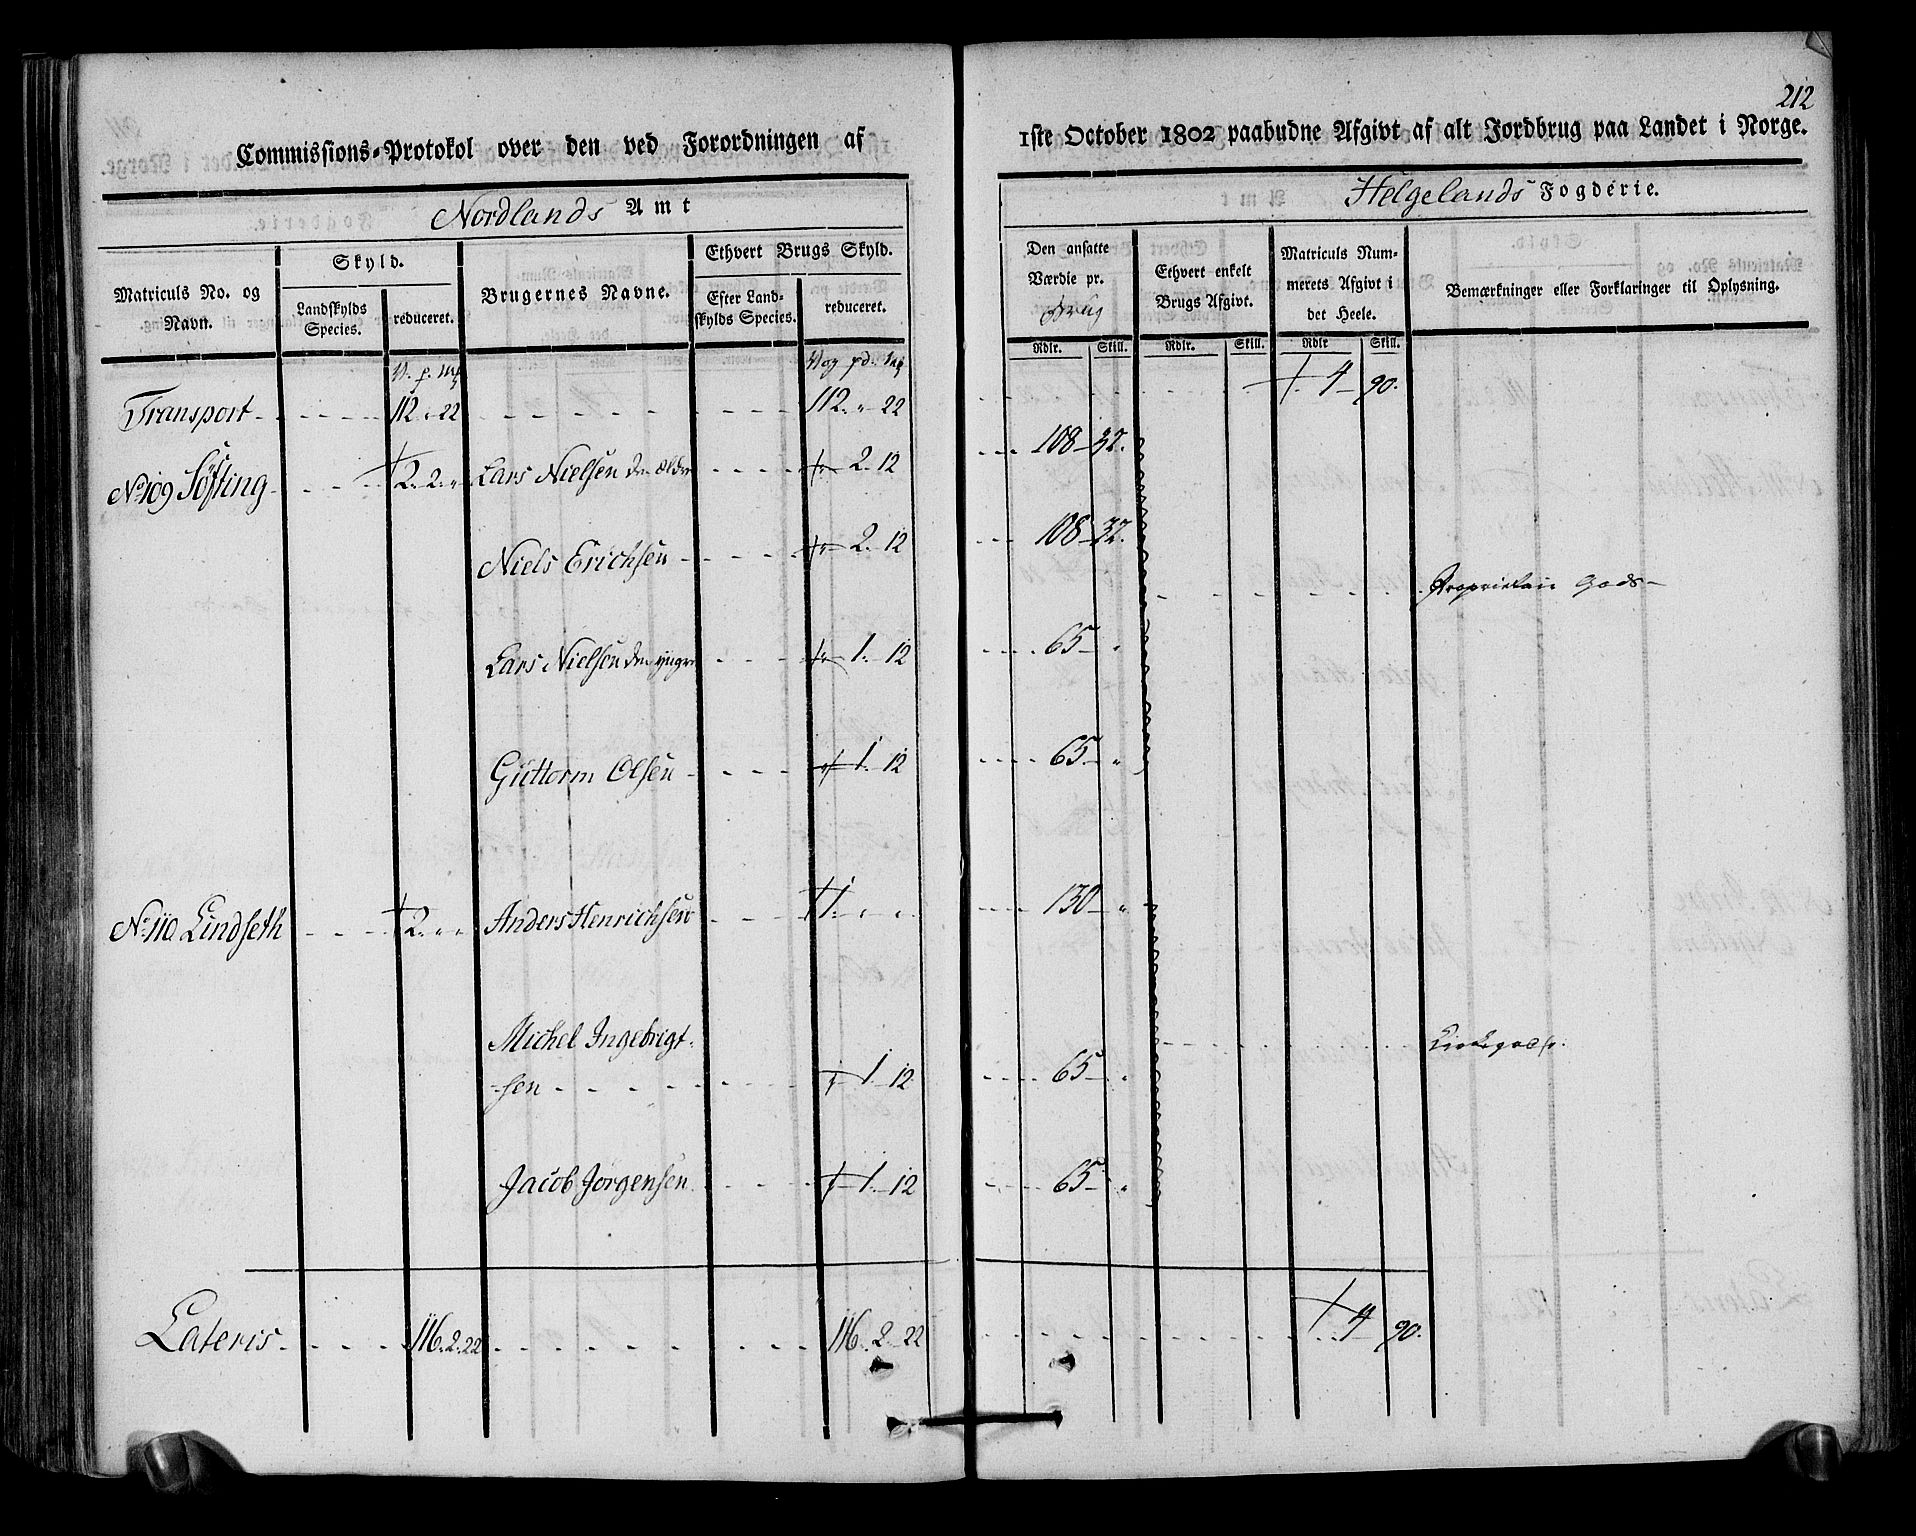 212
Commissions-Protokol over den ved Forordningen af 1ste October 1802 paabudne Afgivt af alt Jordbrug paa Landet i Norge.
Nordlands Amt
Helgelands Fogderie.
Matriculs No. og Navn.
Skyld.
Landskylds Species.
reduceret.
Brugernes Navne.
Ethvert Brugs Skyld.
Efter Landskylds Species.
reduceret.
Den ansatte Værdie pr. Brug
Ethvert enkelt Brugs Afgivt.
Matriculs Nummerets Afgivt i det Heele.
Bemærkninger eller Forklaringer til Oplysning.
Rdlr. Skill. Rdlr. Skill. Rdlr Skill.
V. p. mk
Vog pd. mk
Transport 112 " 22 112. " 22 4 - 90.
No 109 Søfting 2. 2. " Lars Nielsen den ældre " 2. 12 108 - 32.
Niels Erichsen " 2. 12 108 - 32.
Proprietair Gods
Lars Nielsen den yngre " 1. 12 65 - "
Guttorm Olsen " 1. 12 65 - "
No 110 Lindseth 2. " " Anders Henrichsen 1. " " 130 - "
Michel Ingebrigt-
sen " 1 - 12 65 - "
Kirkegods.
Jacob Jørgensen " 1. - 12 65 - "
Lateris 116. 2. 22 116. 2 - 22 4 90.